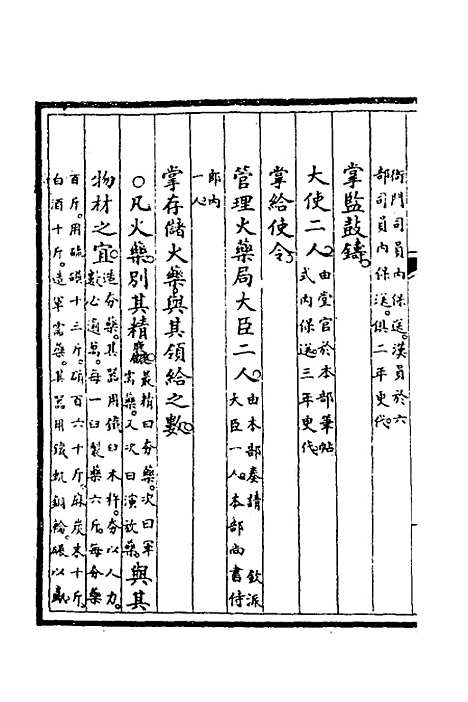 衙門司員內保送。漢員於六
部司員內保送。俱二年更代。
掌監鼓鑄。
大使二人。由堂官於本部筆帖
式內保送。三年更代。
掌給使令。
管理火藥局大臣二人。由本部奏請 欽派
大臣一人。本部尚書侍
郎內
一人。
掌存儲火藥。與其領給之數。
○凡火藥。別其精麤。最精曰夯藥。次曰軍
需藥。又次曰演放藥。與其
物材之宜。造夯藥。其器用鐵臼木杵。夯以人力。
數必逾萬。每一臼製藥六斤。每夯藥
百斤。用硫磺十三斤。硝百六十斤。麻炭末十斤。
白酒十斤。造軍需藥。其器用銅輪。碾以